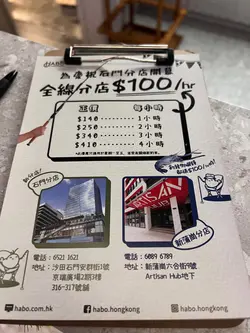 為慶祝石門分店開幕
全線分店$100/hr
正價 每小時
$140 1小時
$250 2小時
$340 3小時
$410 4小時
新分店!
石門分店
ARTISAN
新蒲崗分店
電話：6521 1621
地址：沙田石門安群街1號
京瑞廣場2期3樓
316-317號舖
電話：6089 6789
地址：新蒲崗六合街19號
Artisan Hub地下
habo.com.hk habo.hongkong habo.hongkong